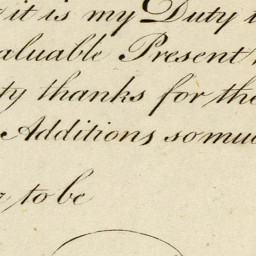 it is my Duty
valuable Present
thanks for the
Additions so muc
to be